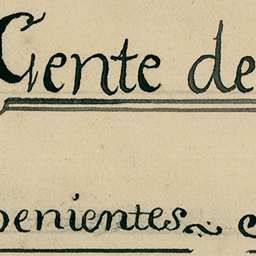 Gente de
penientes